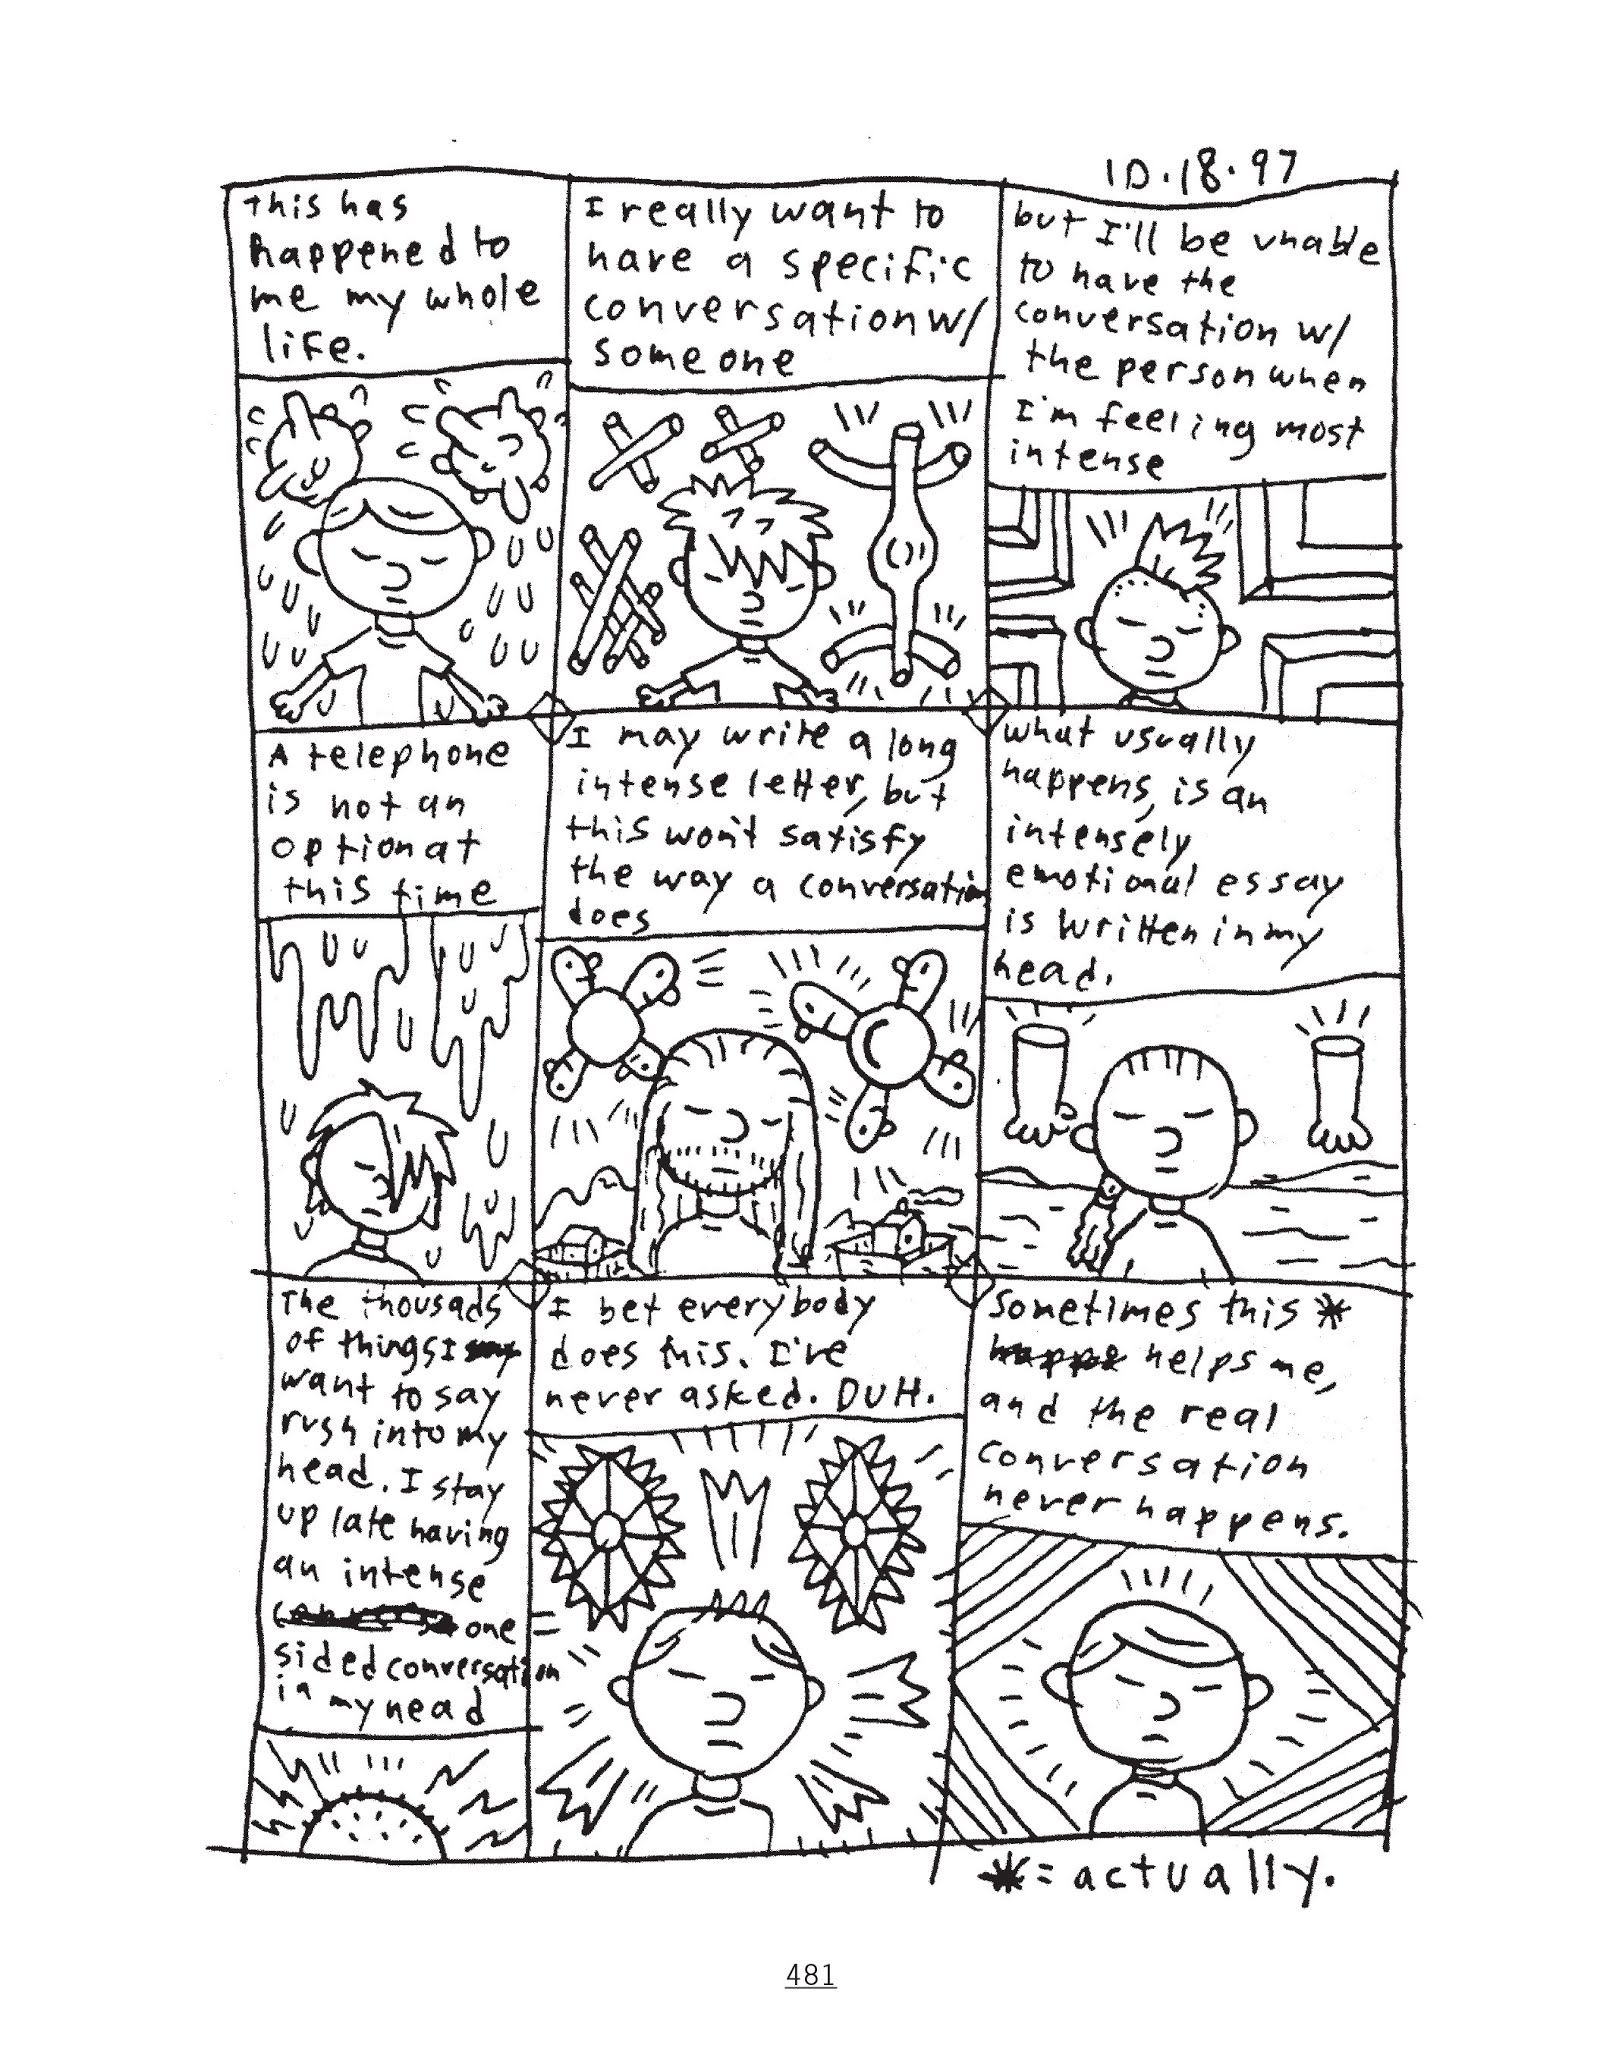 10.18.97
This has
happened to
me my whole
life.
I really want to
have a specific
conversation w/
someone
but I'll be unable
to have the
conversation w/
the person when
I'm feeling most
intense
A telephone
is not an
option at
this time
I may write a long
intense letter, but
this won't satisfy
the way a conversation
does
what usually
happens, is an
intensely
emotional essay
is written in my
head.
The thousads
of things I
want to say
rush into my
head. I stay
up late having
an intense
one
sided conversation
in my head
I bet everybody
does this. I've
never asked. DUH.
Sometimes this *
helps me,
and the real
conversation
never happens.
*= actually.
481